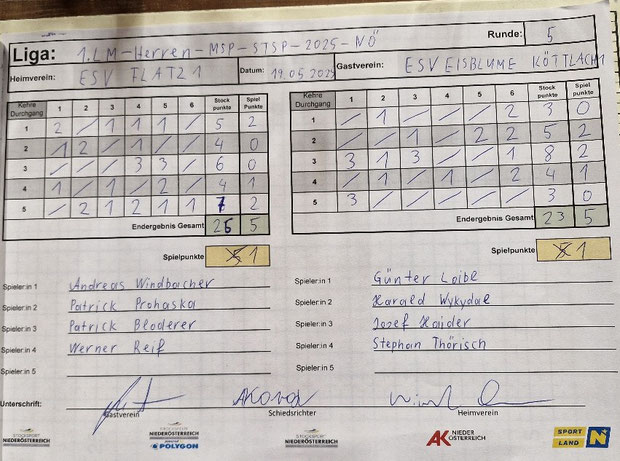 Liga: 1.LM-Herren-MSP-STSP-2025-NÖ Runde: 5
Heimverein: ESV FLATZ 1 Datum: 19.05.2025 Gastverein: ESV EISBLUME KÖTTLACH 1
Kehre Durchgang 1 2 3 4 5 6 Stock punkte Spiel Punkte
1 2 / 1 1 1 / 5 2
2 1 2 / 1 / / 4 0
3 / / / 3 3 / 6 0
4 1 / 1 / 2 / 4 1
5 / 2 1 2 1 1 7 2
Endergebnis Gesamt 26 5
Spielpunkte 5 1
Kehre Durchgang 1 2 3 4 5 6 Stock punkte Spiel punkte
1 / 1 / / / 2 3 0
2 / / 1 / 2 2 5 2
3 3 1 3 / / 1 8 2
4 / 1 / 1 / 2 4 1
5 3 / / / / / 3 0
Endergebnis Gesamt 23 5
Spielpunkte 5 1
Spieler:in 1 Andreas Windbacher
Spieler:in 2 Patrick Prohaska
Spieler:in 3 Patrick Bloderer
Spieler:in 4 Werner Reif
Spieler:in 5
Spieler:in 1 Günter Loibl
Spieler:in 2 Harald Wykydal
Spieler:in 3 Jozef Haider
Spieler:in 4 Stephan Thörisch
Spieler:in 5
Unterschrift:
Gastverein Schiedsrichter Heimverein
NIEDERÖSTERREICH
POLYGON
NIEDERÖSTERREICH
AK NIEDER ÖSTERREICH
SPORT LAND N